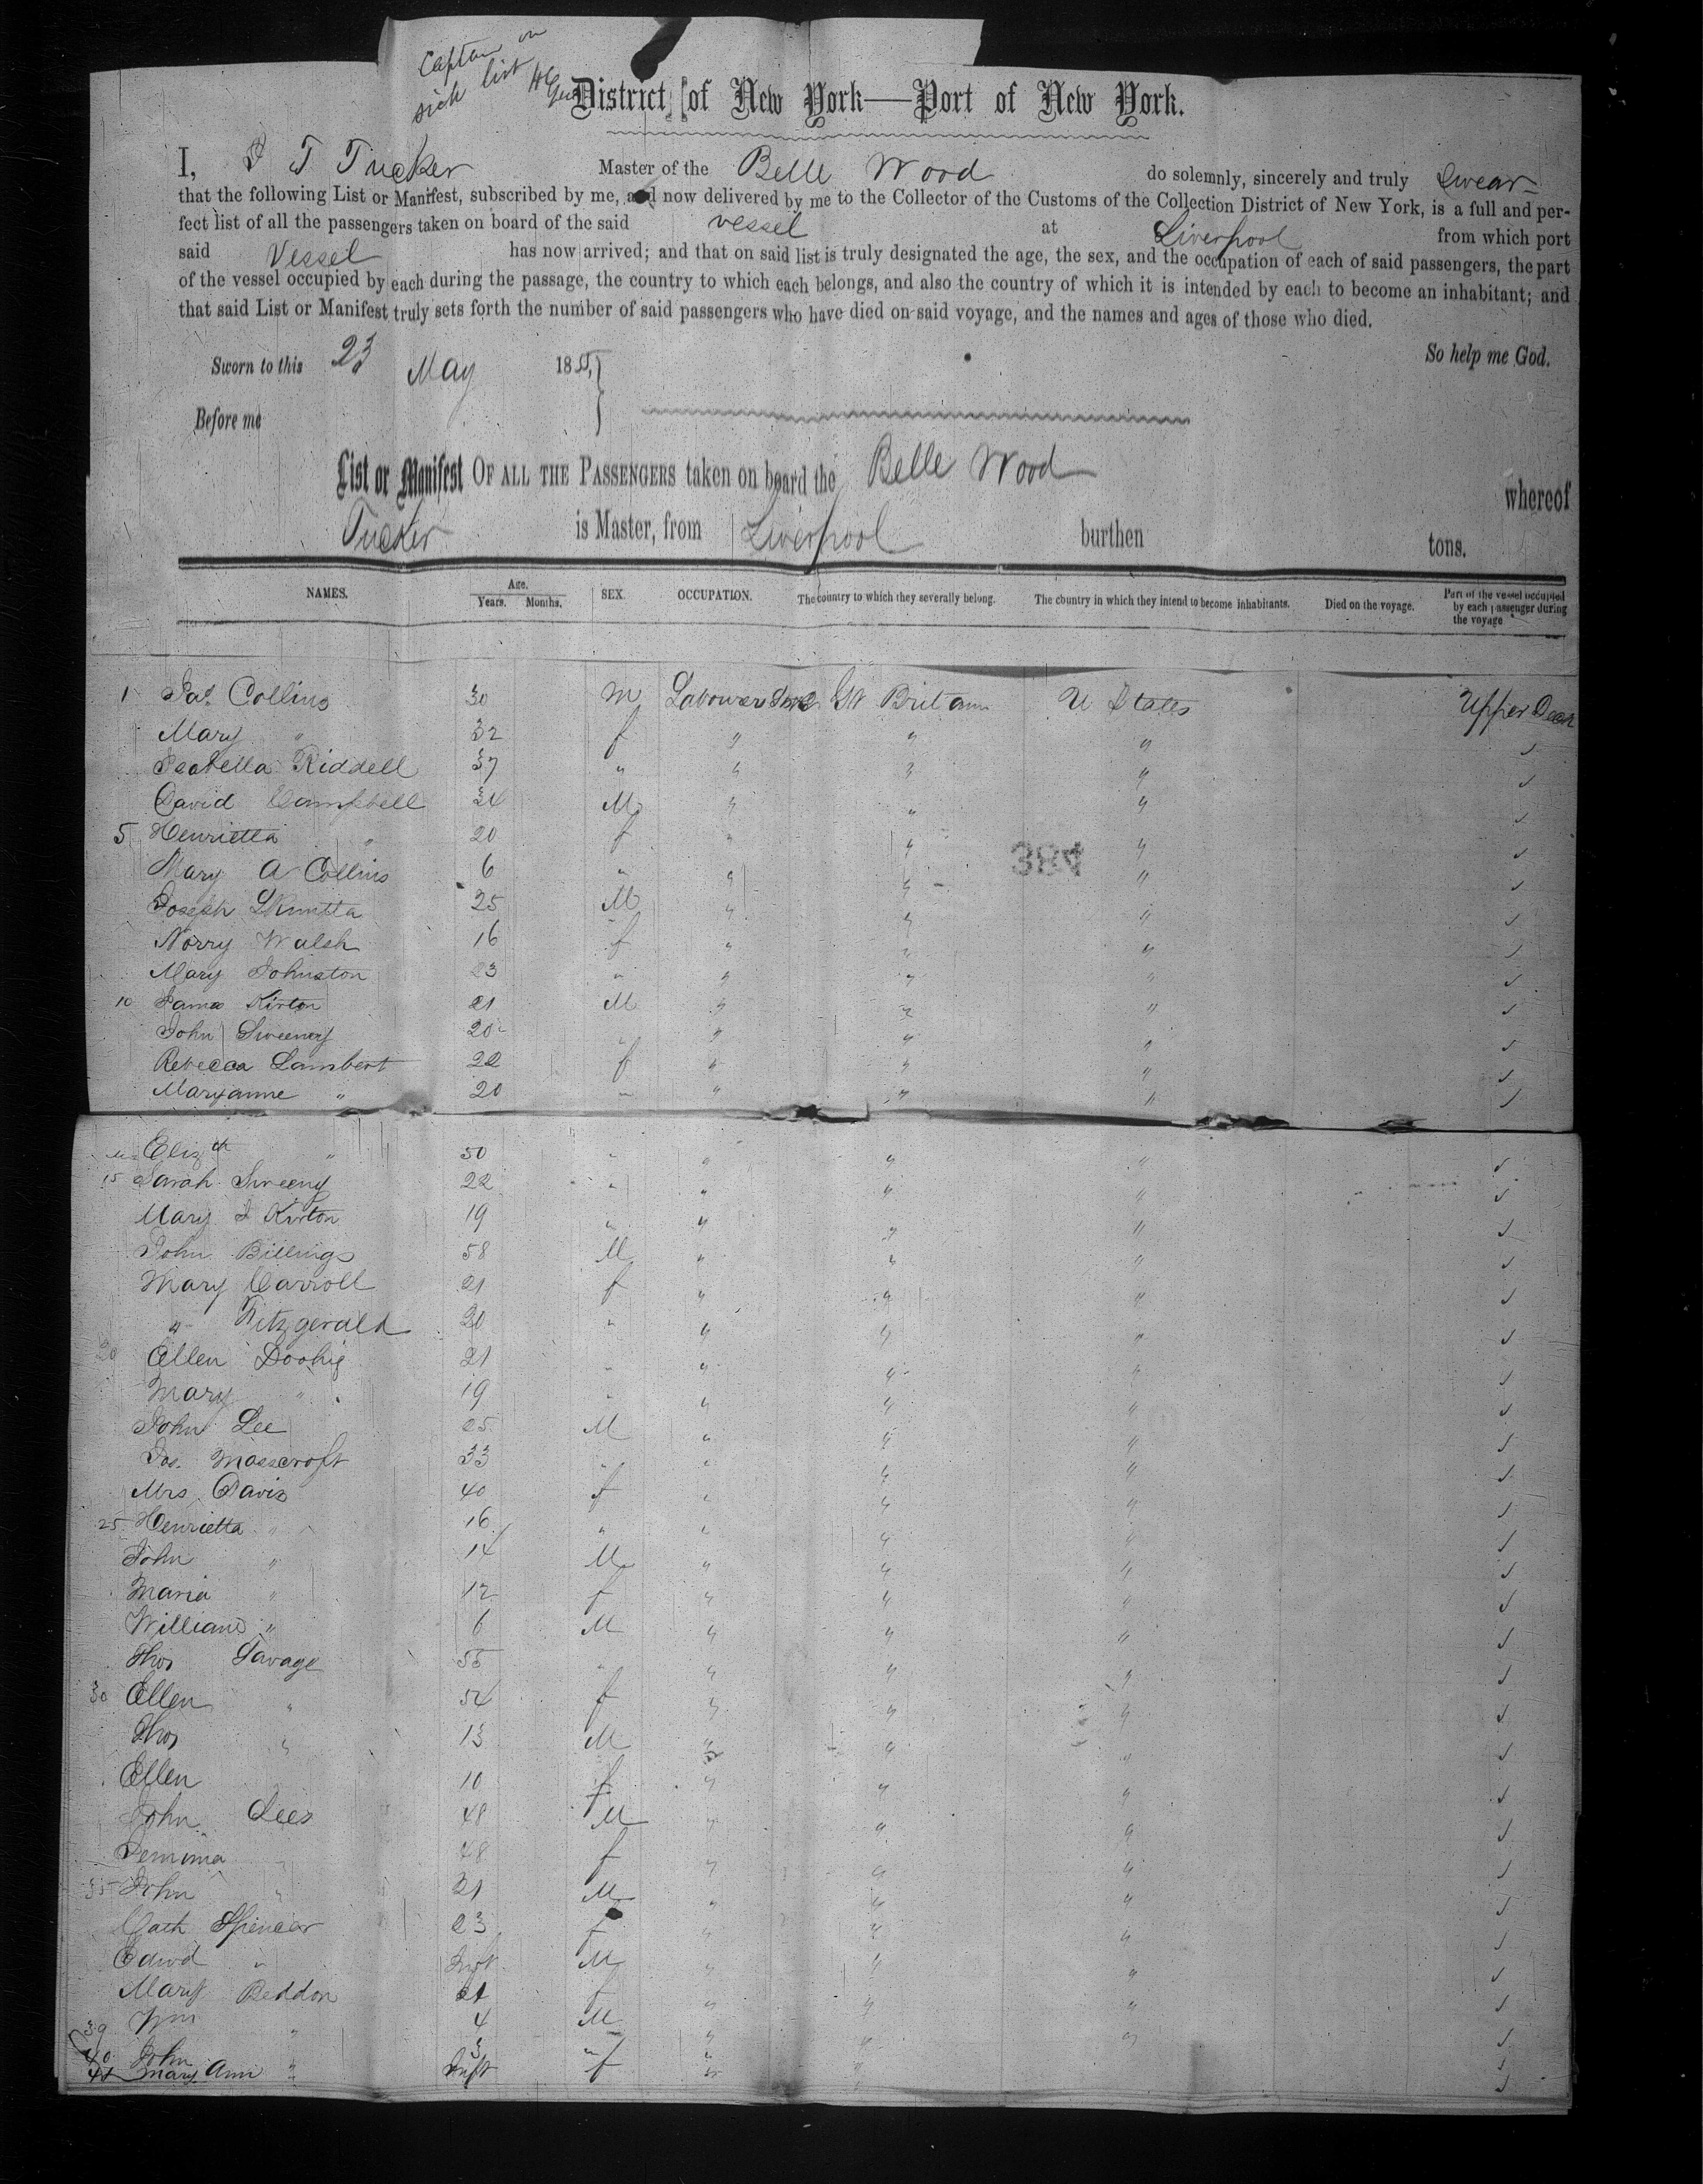 Captain on
sick list
District of New York—Port of New York.
I, T Tucker Master of the Belle Wood do solemnly, sincerely and truly swear
that the following List or Manifest, subscribed by me, and now delivered by me to the Collector of the Customs of the Collection District of New York, is a full and per-
fect list of all the passengers taken on board of the said vessel at Liverpool from which port
said Vessel has now arrived; and that on said list is truly designated the age, the sex, and the occupation of each of said passengers, the part
of the vessel occupied by each during the passage, the country to which each belongs, and also the country of which it is intended by each to become an inhabitant; and
that said List or Manifest truly sets forth the number of said passengers who have died on said voyage, and the names and ages of those who died.
So help me God.
Sworn to this 23 May 185
Before me
List or Manifest OF ALL THE PASSENGERS taken on board the Belle Wood whereof
Tucker is Master, from Liverpool burthen tons.
NAMES. Age. Years. Months. SEX. OCCUPATION. The country to which they severally belong. The country in which they intend to become inhabitants. Died on the voyage. Part of the vessel occupied by each passenger during the voyage
1 Jas. Collins 30 M Labourer Gt Britain U States Upper Deck
Mary " 32 f " " "
Isabella Riddell 37 " " " "
David Campbell 24 M " " "
5 Henrietta " 20 f " " "
384
Mary A Collins 6 " " " "
Joseph 25 M " " "
Norry Walsh 16 f " " "
Mary Johnston 23 " " " "
10 James Kirton 21 M " " "
John Sweeney 20 " " " "
Rebecca Lambert 22 f " " "
Maryanne " 20 " " " "
Elizth " 50 " " " "
15 Sarah Sweeny 22 " " " "
Mary J Kirton 19 " " " "
John Billings 58 M " " "
Mary Carroll 21 f " " "
" Fitzgerald 20 " " " "
20 Ellen Doohig 21 " " " "
Mary " 19 " " " "
John Lee 25 M " " "
Jos. Mosscroft 33 " " " "
Mrs Davis 40 f " " "
25 Henrietta " 16 " " " "
John " 14 M " " "
Maria " 12 f " " "
William " 6 M " " "
Thos Savage 55 " " " "
30 Ellen " 54 f " " "
Thos " 13 M " " "
Ellen 10 f " " "
John Lees 48 M " " "
Jemima " 48 f " " "
35 John " 21 M " " "
Cath Spencer 23 f " " "
Edwd " Inft M " " "
Mary Beddon 21 f " " "
39 Wm " 4 M " " "
40 John " 3 " " "
41 Mary Ann " Inft f " "